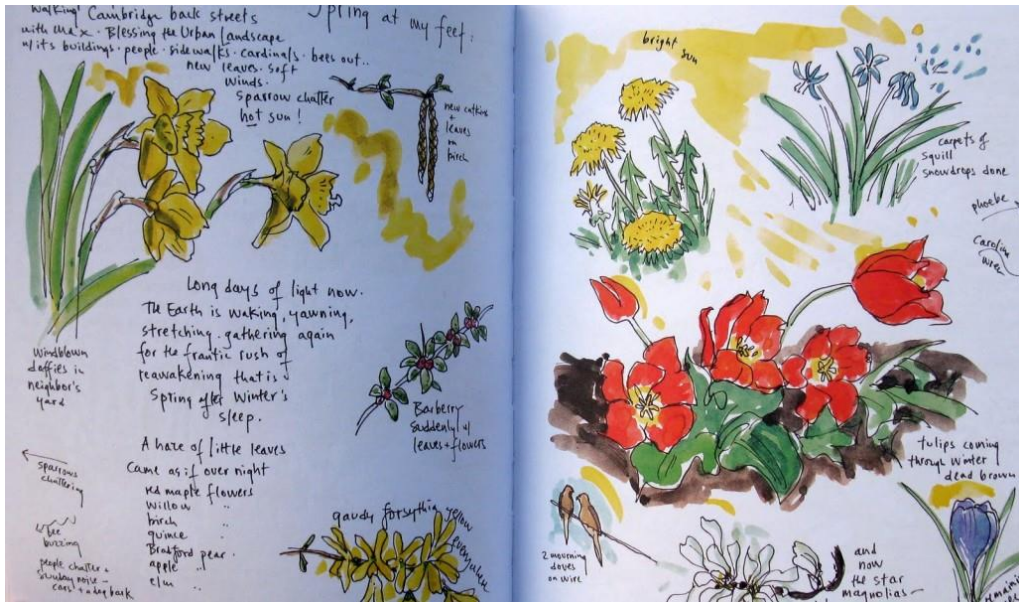 Walking Cambridge back streets
with Max · Blessing the Urban Landscape
w/its buildings · people · sidewalks · cardinals · bees out..
new leaves · soft
winds ·
sparrow chatter
hot sun!
Spring at my feet:
new catkins
+
leaves
on
birch
Long days of light now.
The Earth is waking, yawning,
stretching, gathering again
for the frantic rush of
reawakening that is
Spring after Winter's
sleep.
Windblown
daffies in
neighbor's
yard
Barberry
suddenly w/
leaves + flowers
A haze of little leaves
Came as if over night
red maple flowers
willow "
birch "
quince "
Bradford pear ·
apple "
elm "
sparrows
chattering
bee
buzzing
people chatter +
noise -
cars + a dog bark
gaudy forsythia yellow
everywhere
bright
sun
carpets of
squill
snowdrops done
phoebe
Carolina
wren
tulips coming
through Winter
dead brown
2 mourning
doves
on wire
and
now
the star
magnolias -